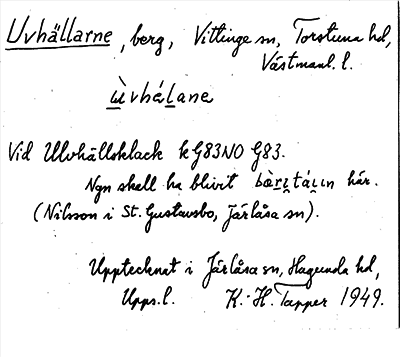 Uvhällarne, berg, Vittinge sn, Torstuna hd,
Västmanl. l.
ùvhálane
Vid Ulvhällsklack kG83NO G83.
Ngn skall ha blivit bàrı̣táı̣ın här.
(Nilsson i St. Gustavsbo, Järlåsa sn).
Upptecknat i Järlåsa sn, Hagunda hd,
Upps. l. K.-H. Tapper 1949.